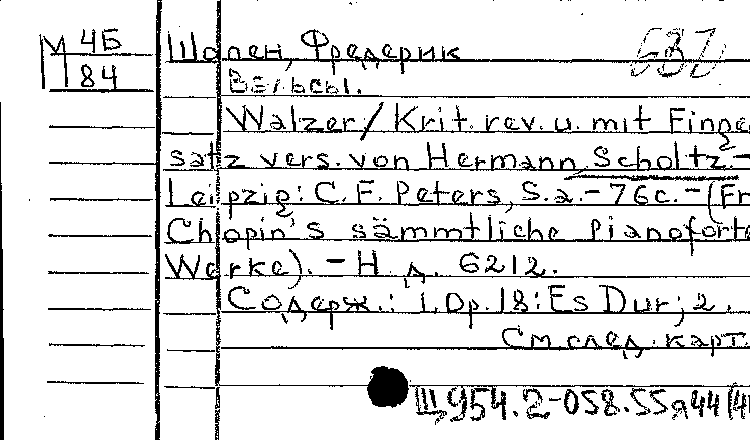 М 4Б
84
Шопен, Фредерик
632
Вальсы.
Walzer / Krit. rev. u. mit Finge
satz vers. von Hermann Scholtz. –
Leipzig: C. F. Peters, S. a. – 76 с. – (Fr
Chopin's sämmtliche Pianoforte
Werke). – Н. д. 6212.
Содерж.: 1. Op. 18: Es Dur; 2.
См. след. карт.
Щ954.2-058.55я44(4